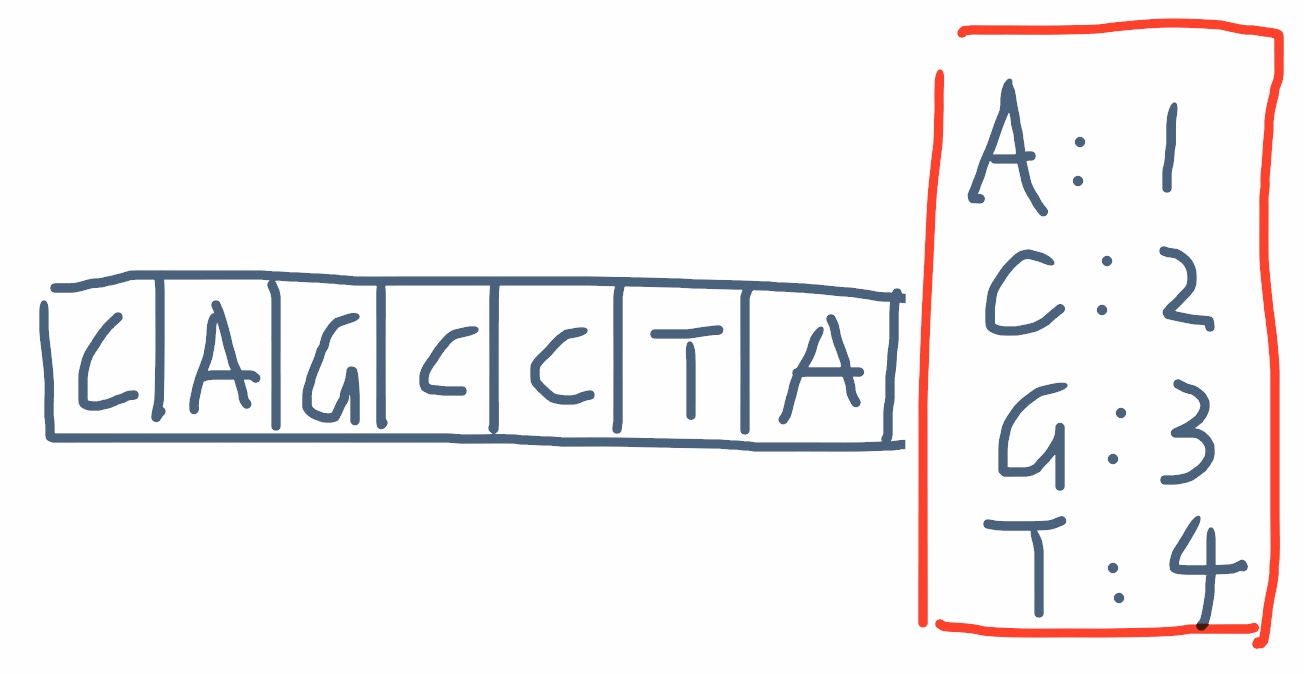 C A G C C T A
A: 1
C: 2
G: 3
T: 4